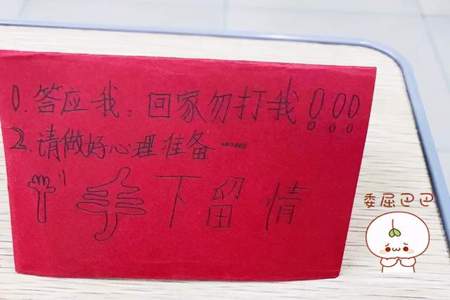 1. 答应我：回家勿打我！！！
2. 请做好心理准备——
手下留情
委屈巴巴